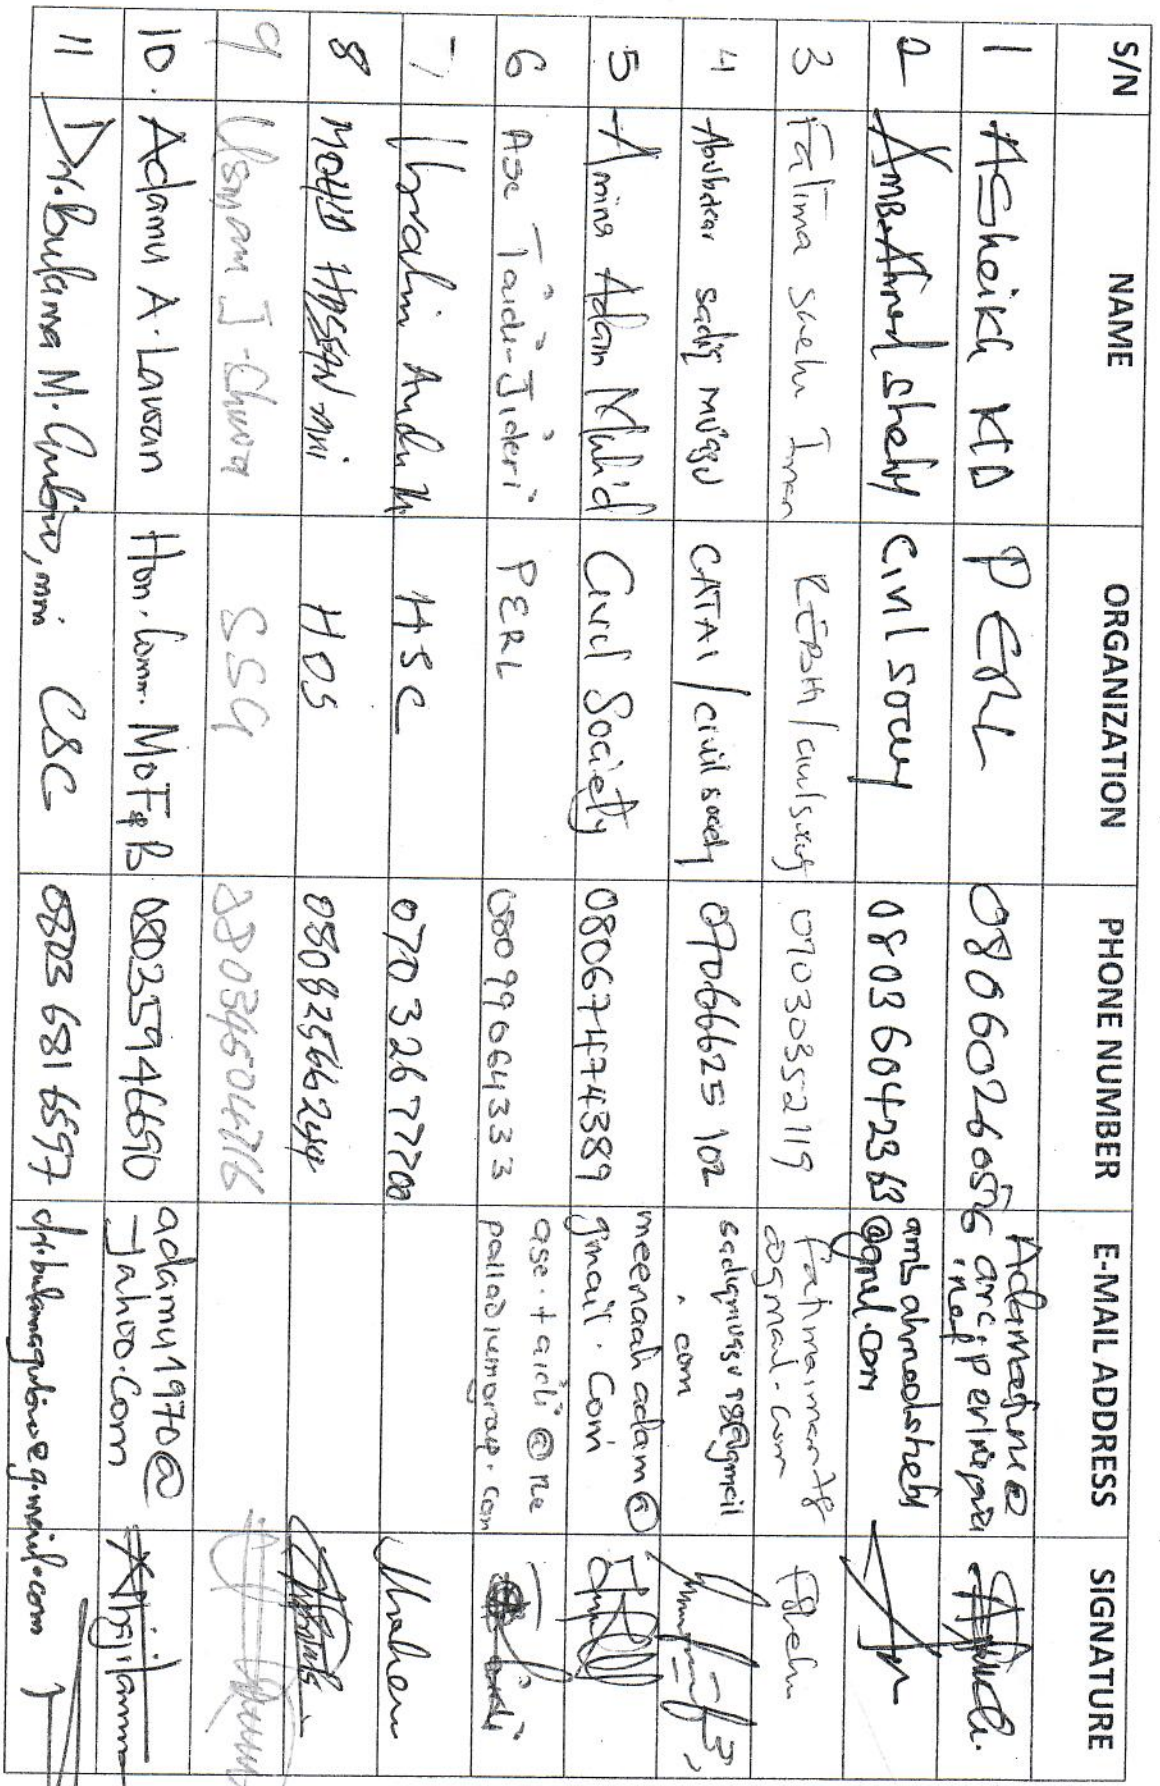 S/N NAME ORGANIZATION PHONE NUMBER E-MAIL ADDRESS SIGNATURE
1 Asheikh KD PERL 08066026056
2 Amb. Ahmed Shehu Civil Socety 08036042363 ambahmedshehu @gmail.com
3 Fatima Shehu Imam 07030352119 fatimaimam78 @gmail.com
4 Abubakar sadiq mu'azu CATAI / civil society 07066625102 sadiqmuazu78@gmail .com
5 Amina Adam Muh'd Civil Society 08067474389 meenaahadam@ gmail.com
6 Ase Taidi-Jideri PERL 08099064333 ase.taidi@ne palladiumgroup.com
7 Ibrahim Audu HSC 07032677700
8 MOHD HASSAN HOS 08082566244
9 Usman J. SSG
10. Adamu A. Lawan Hon. Comm. MoF&B 08035946690 adamu1970@ yahoo.com
11 Dr. Bulama M. Gubio, mni CSC 08036816597 dr.bulamagubio@gmail.com